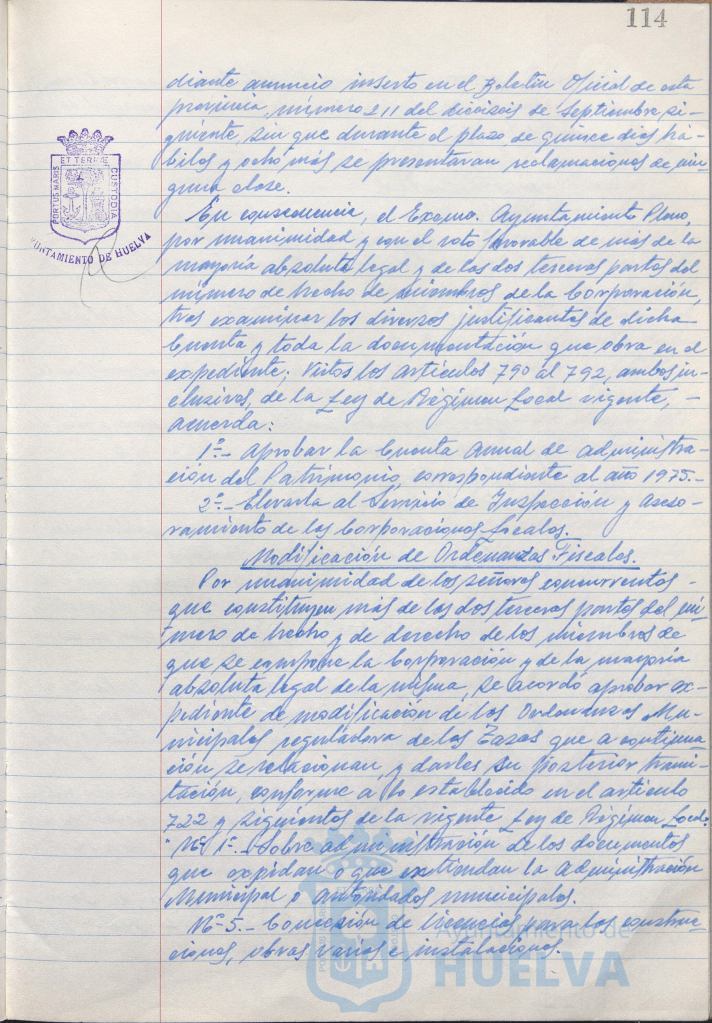 114
diante anuncio inserto en el Boletín Oficial de esta
provincia, número 211 del dieciseis de Septiembre si-
guiente, sin que durante el plazo de quince días há-
biles y ocho más se presentaran reclamaciones de nin-
guna clase.
En consecuencia, el Excmo. Ayuntamiento Pleno,
por unanimidad y con el voto favorable de más de la
mayoría absoluta legal y de las dos terceras partes del
número de hecho de miembros de la Corporación,
tras examinar los diversos justificantes de dicha
Cuenta y toda la documentación que obra en el
expediente; Vistos los artículos 790 al 792, ambos in-
clusives, de la Ley de Régimen Local vigente, -
acuerda:
1º.- Aprobar la Cuenta Anual de administra-
ción del Patrimonio, correspondiente al año 1975.-
2º.- Elevarla al Servicio de Inspección y aseso-
ramiento de las Corporaciones Locales.
Modificación de Ordenanzas Fiscales.
Por unanimidad de los señores concurrentes -
que constituyen más de las dos terceras partes del nú-
mero de hecho y de derecho de los miembros de
que se compone la Corporación y de la mayoría
absoluta legal de la misma, se acordó aprobar ex-
pediente de modificación de las Ordenanzas Mu-
nicipales reguladora de las Tasas que a continua
ción se relacionan, y darles su posterior trami-
tación, conforme a lo establecido en el artículo
722 y siguientes de la vigente Ley de Régimen Local.
"Nº 1º.- Sobre administración de los documentos
que expidan o que extiendan la Administración
Municipal o autoridades municipales.
Nº 5.- Concesión de licencias para las construc-
ciones, obras varias e instalaciones.
PORTUS MARIS ET TERRAE CUSTODIA
AYUNTAMIENTO DE HUELVA
Ayuntamiento de
HUELVA